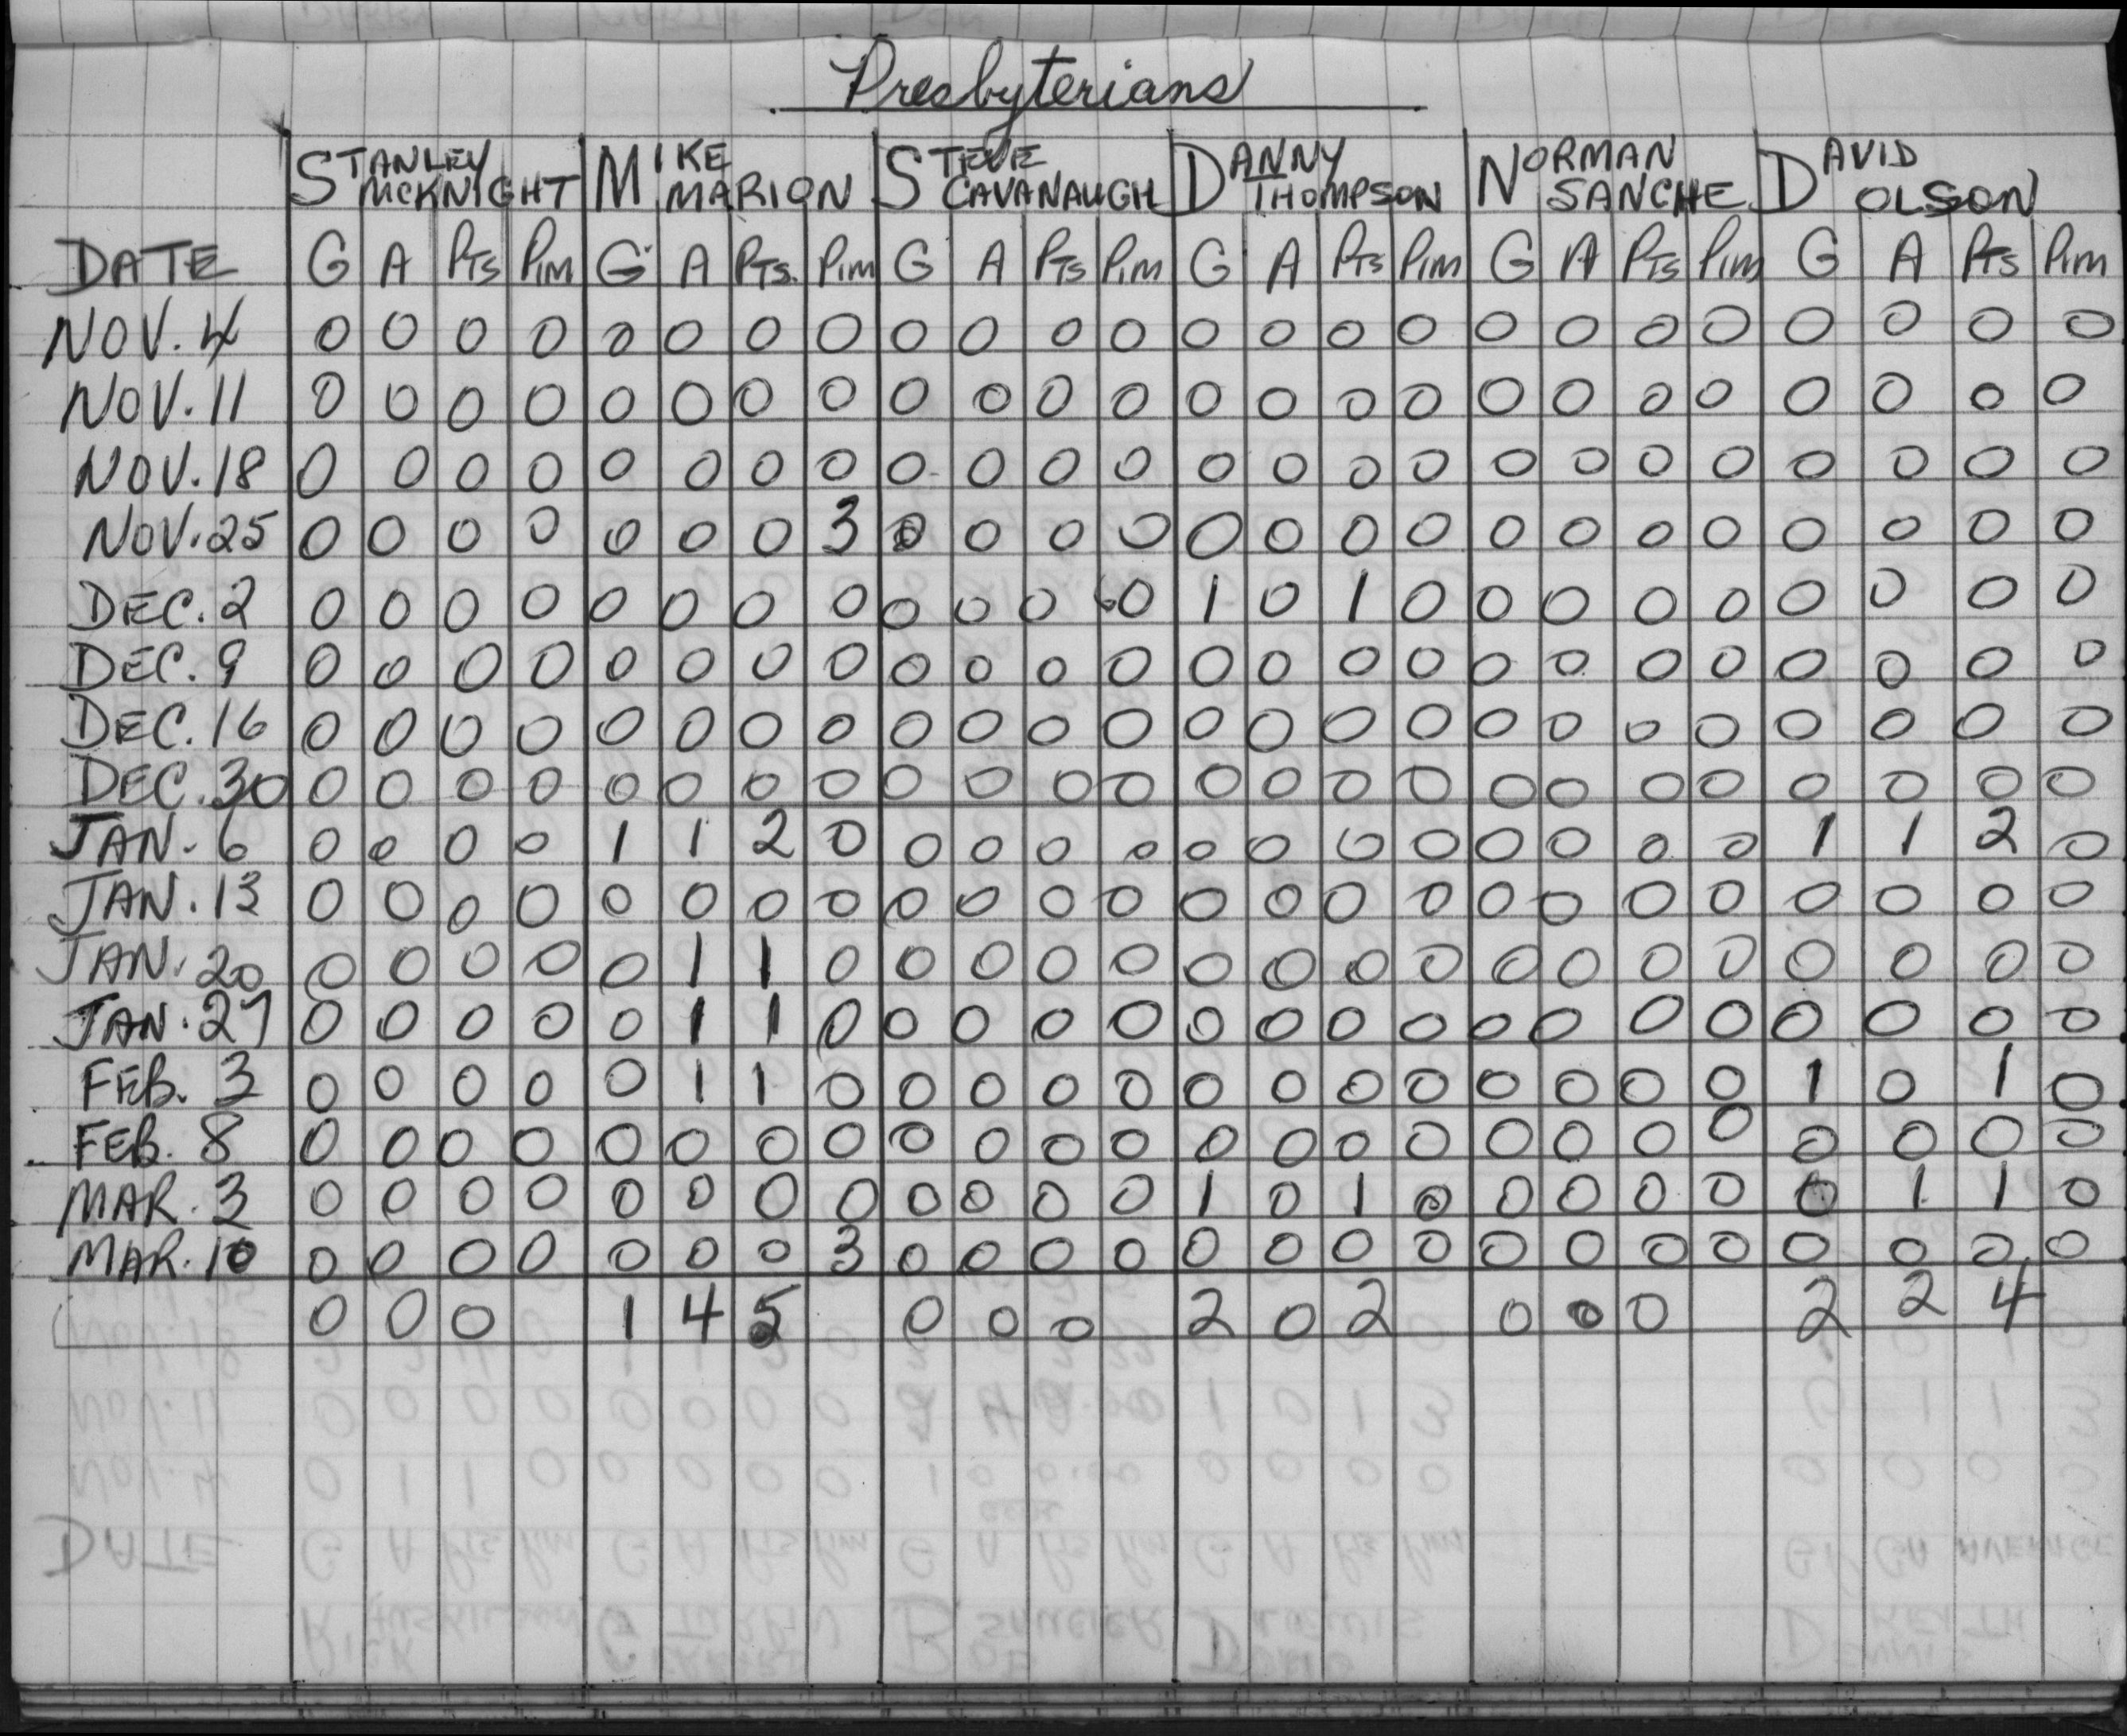 Presbyterians
STANLEY MCKNIGHT MIKE MARION STEVE CAVANAUGH DANNY THOMPSON NORMAN SANCHE DAVID OLSON
DATE G A PTS PIM G A PTS. PIM G A PTS PIM G A PTS PIM G A PTS PIM G A PTS PIM
NOV. 4 0 0 0 0 0 0 0 0 0 0 0 0 0 0 0 0 0 0 0 0 0 0 0 0
NOV. 11 0 0 0 0 0 0 0 0 0 0 0 0 0 0 0 0 0 0 0 0 0 0 0 0
NOV. 18 0 0 0 0 0 0 0 0 0 0 0 0 0 0 0 0 0 0 0 0 0 0 0 0
NOV. 25 0 0 0 0 0 0 0 3 0 0 0 0 0 0 0 0 0 0 0 0 0 0 0 0
DEC. 2 0 0 0 0 0 0 0 0 0 0 0 0 1 0 1 0 0 0 0 0 0 0 0 0
DEC. 9 0 0 0 0 0 0 0 0 0 0 0 0 0 0 0 0 0 0 0 0 0 0 0 0
DEC. 16 0 0 0 0 0 0 0 0 0 0 0 0 0 0 0 0 0 0 0 0 0 0 0 0
DEC. 30 0 0 0 0 0 0 0 0 0 0 0 0 0 0 0 0 0 0 0 0 0 0 0 0
JAN. 6 0 0 0 0 1 1 2 0 0 0 0 0 0 0 0 0 0 0 0 0 1 1 2 0
JAN. 13 0 0 0 0 0 0 0 0 0 0 0 0 0 0 0 0 0 0 0 0 0 0 0 0
JAN. 20 0 0 0 0 0 1 1 0 0 0 0 0 0 0 0 0 0 0 0 0 0 0 0 0
JAN. 27 0 0 0 0 0 1 1 0 0 0 0 0 0 0 0 0 0 0 0 0 0 0 0 0
FEB. 3 0 0 0 0 0 1 1 0 0 0 0 0 0 0 0 0 0 0 0 0 1 0 1 0
FEB. 8 0 0 0 0 0 0 0 0 0 0 0 0 0 0 0 0 0 0 0 0 0 0 0 0
MAR. 3 0 0 0 0 0 0 0 0 0 0 0 0 1 0 1 0 0 0 0 0 0 1 1 0
MAR. 10 0 0 0 0 0 0 0 3 0 0 0 0 0 0 0 0 0 0 0 0 0 0 0 0
0 0 0 1 4 5 0 0 0 2 0 2 0 0 0 2 2 4